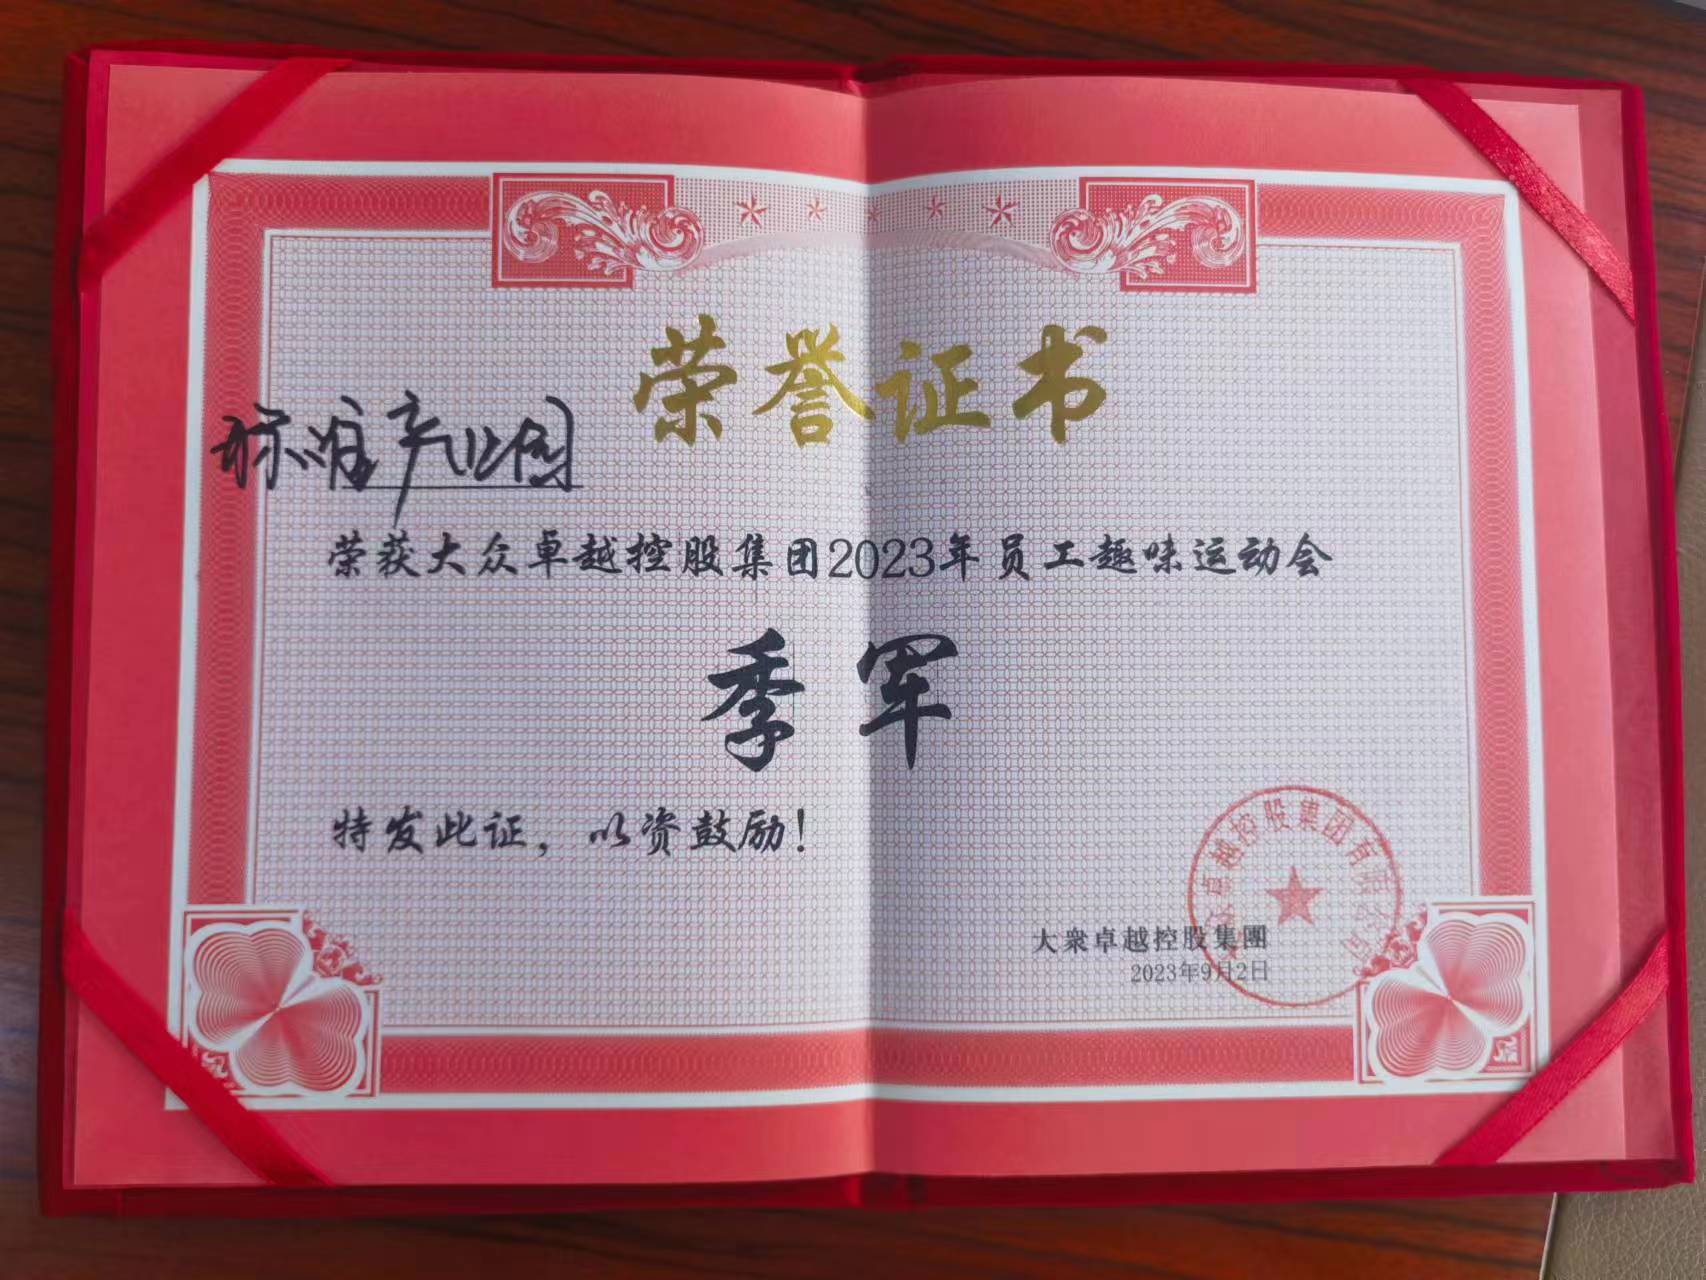 荣誉证书
标准产业园
荣获大众卓越控股集团2023年员工趣味运动会
季军
特发此证，以资鼓励！
大衆卓越控股集團
2023年9月2日
众卓越控股集团有限公司